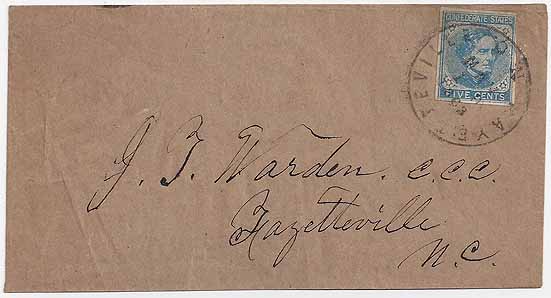 CONFEDERATE STATES
FIVE CENTS
FAYETTEVILLE
J. T. Warden. c.c.c.
Fayetteville
N.C.